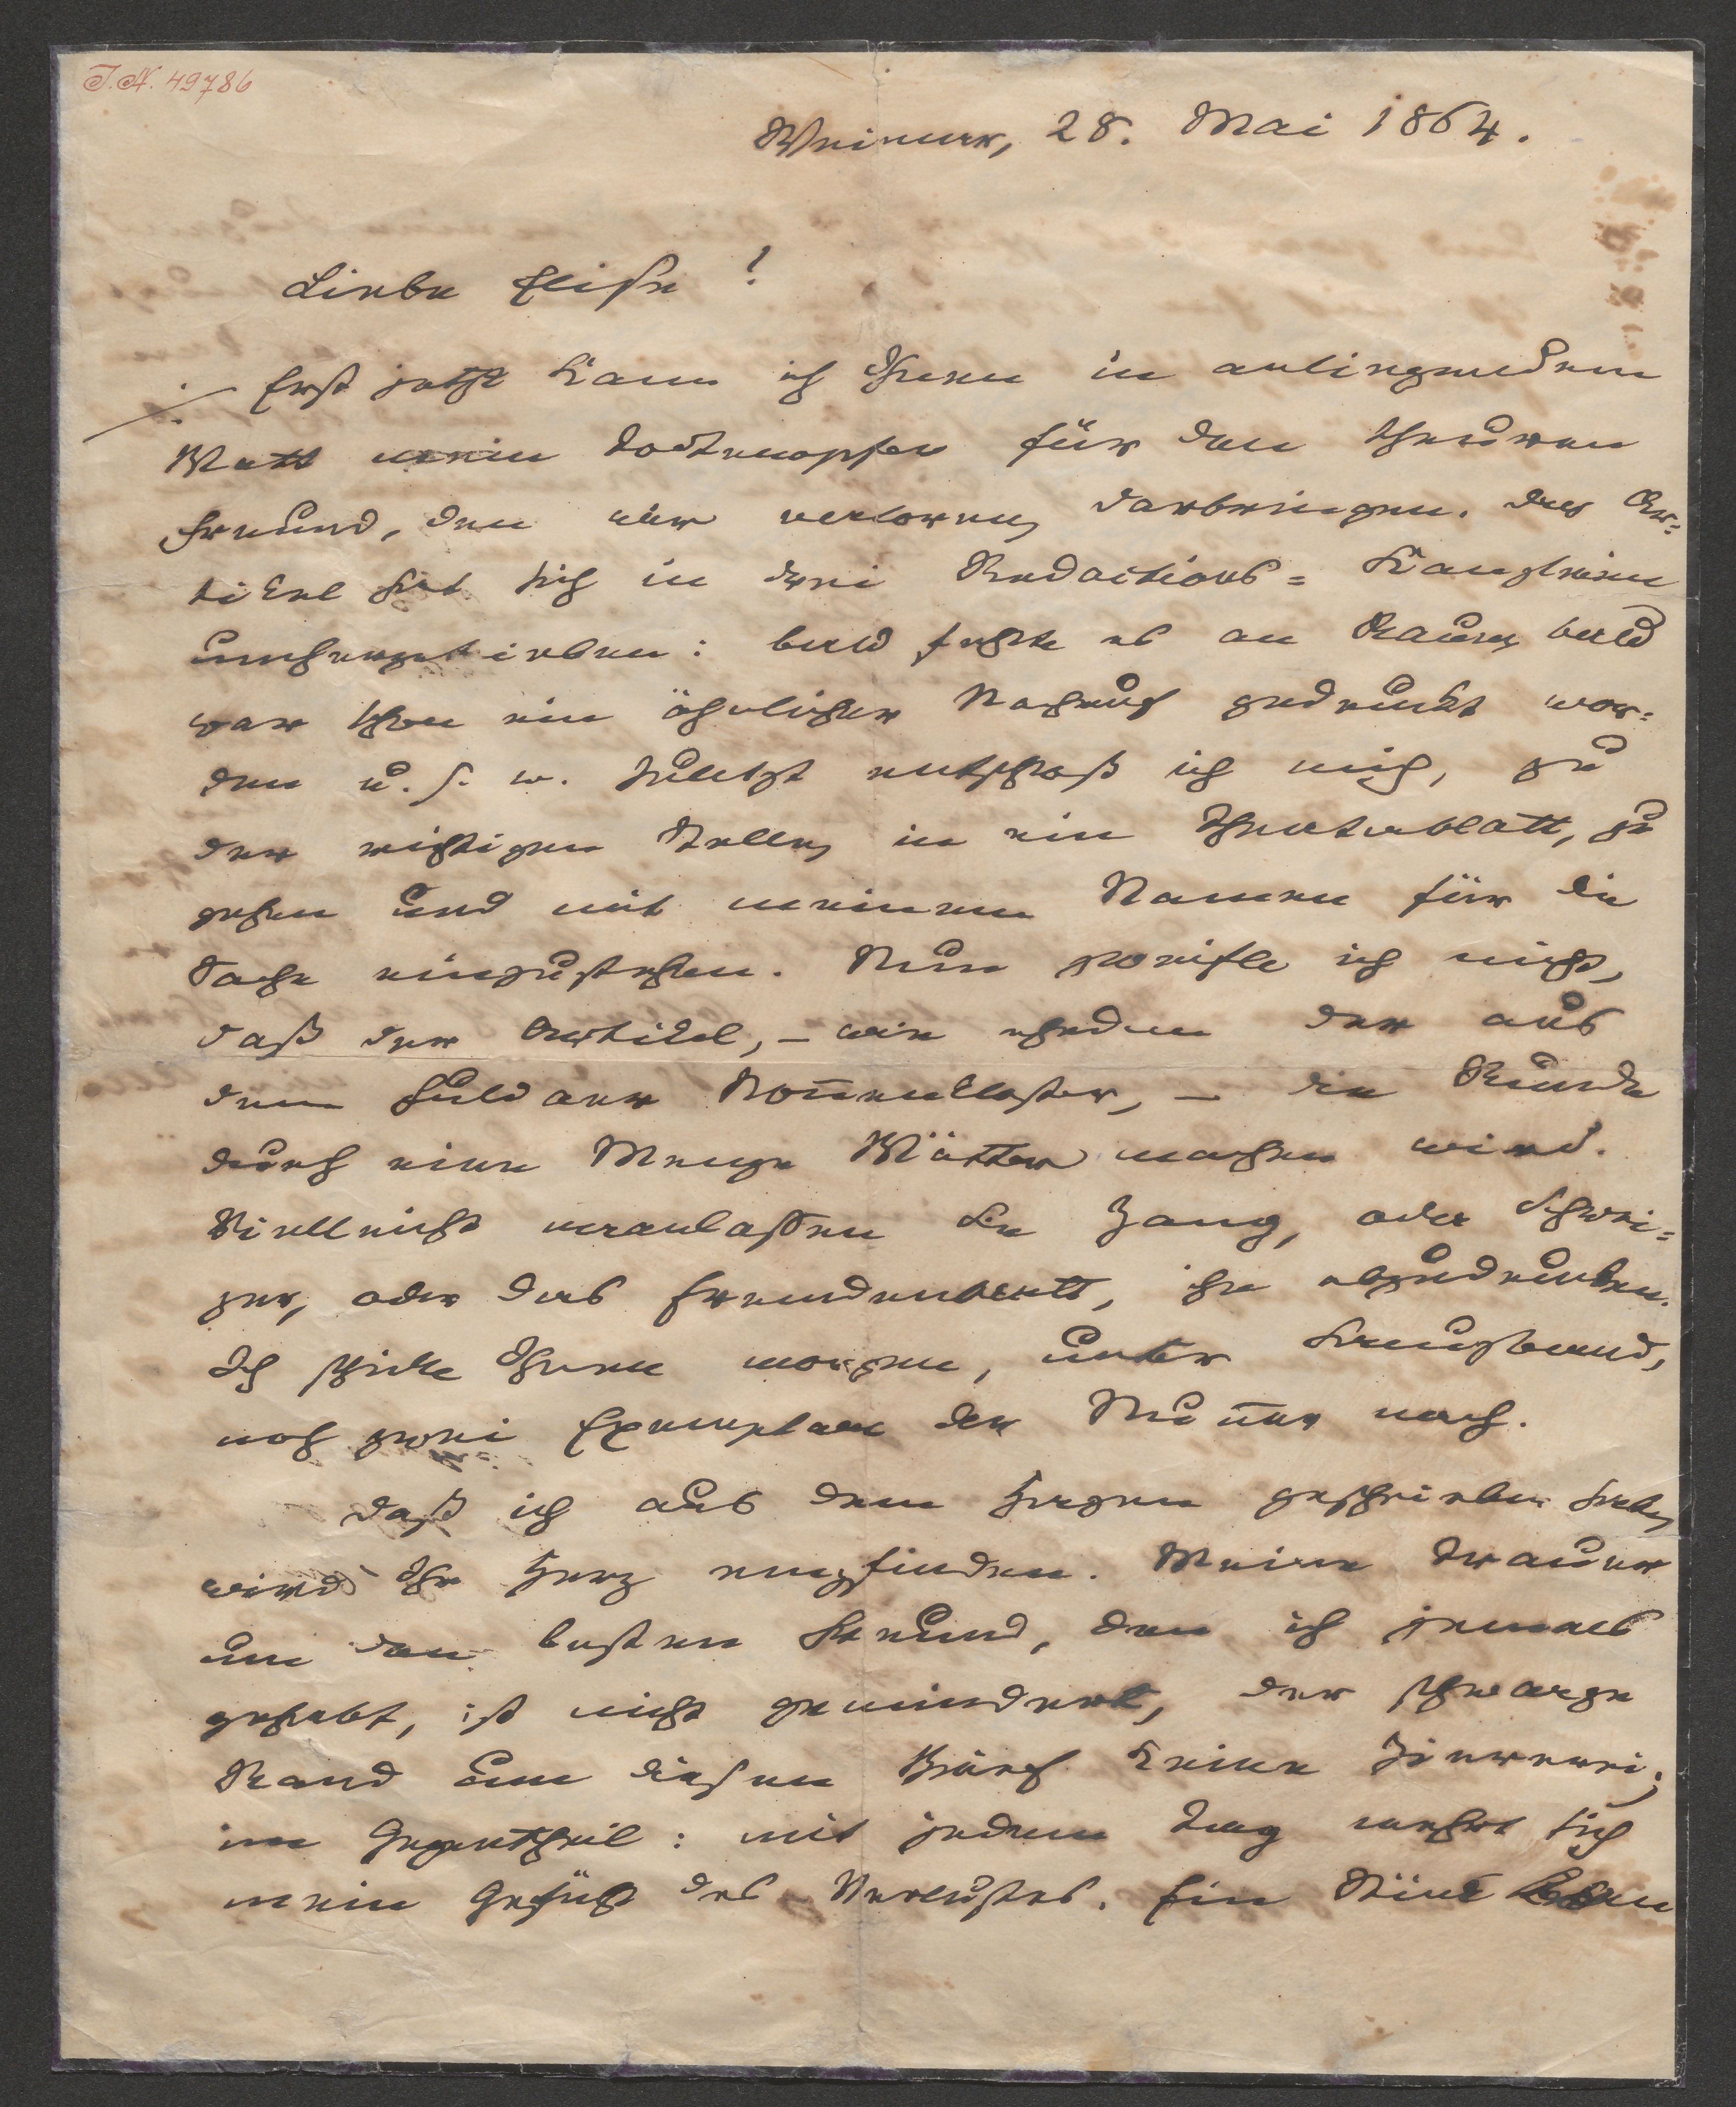 I.N. 49786
Weimar, 28. Mai 1864.
Liebe Elise!
Erst jetzt kann ich Ihnen in anliegendem
Blatt mein Todtenopfer für den theuren
Freund, den wir verloren, darbringen. Der Ar=
tikel hat sich in drei Redactions=Kanzleien
umhergetrieben: bald fehlte es an Raum, bald
war schon ein ähnlicher Nachruf gedruckt wor=
den u. s. w. Zuletzt entschloß ich mich, zu
der richtigen Stelle, in ein Theaterblatt, zu
gehen und mit meinem Namen für die
Sache einzustehen. Nun zweifle ich nicht,
daß der Artikel, – wie ehedem der aus
dem Fuldaer Nonnenkloster, – die Runde
durch eine Menge Blätter machen wird.
Vielleicht veranlassen Sie Zang, oder Schwei=
zer, oder das Fremdenblatt, ihn abzudrucken.
Ich schicke Ihnen morgen, unter Kreuzband,
noch zwei Exemplare der Nummer nach.
Daß ich aus dem Herzen geschrieben habe,
wird Ihr Herz empfinden. Meine Trauer
um den besten Freund, den ich jemals
gehabt, ist nicht gemindert, der schwarze
Rand um diesen Brief keine Ziererei;
im Gegentheil: mit jedem Tag mehrt sich
mein Gefühl des Verlustes. Ein Stück Leben